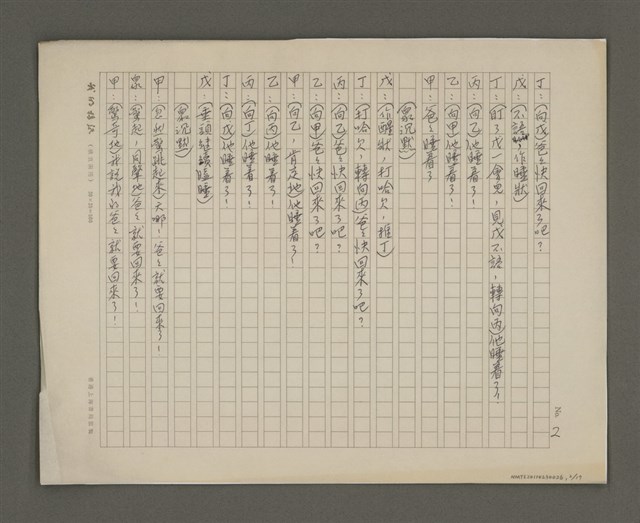 丁：(向戊)爸爸快回來了吧？
戊：(不語，作睡狀)
丁：(盯了戊一會兒，見戊不語，轉向丙)他睡着了！
丙：(向乙)他睡着了！
乙：(向甲)他睡着了！
甲：爸爸睡着了
(衆沉默)
戊：(作醒狀，打哈欠，推丁)
丁：(打哈欠，轉向丙)爸爸快回來了吧？
丙：(向乙)爸爸快回來了吧？
乙：(向甲)爸爸快回來了吧？
甲：(向乙，肯定地)他睡着了！
乙：(向丙)他睡着了！
丙：(向丁)他睡着了！
丁：(向戊)他睡着了！
戊：(垂頭瞌睡)
(衆沉默)
甲：(忽然驚跳起來)天哪！爸爸就要回來了！
衆：(驚起，同聲地)爸爸就要回來了！
甲：(驚奇地)我説我的爸爸就要回來了！
2